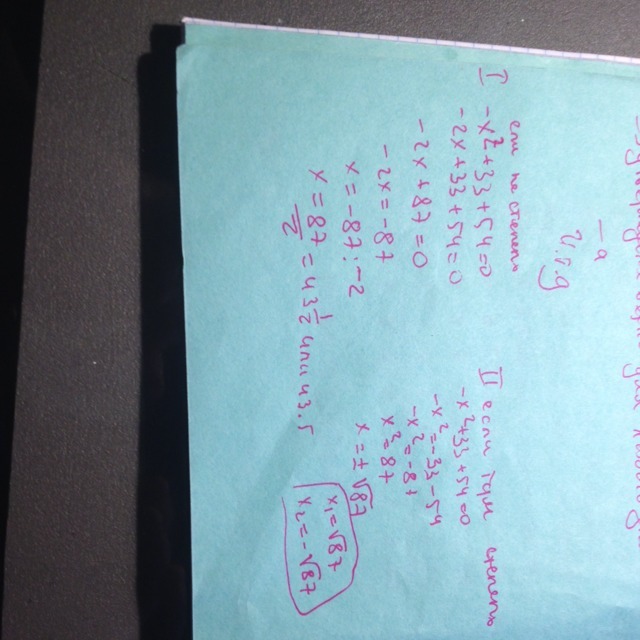 -a
I
если не степень
-x²+33+54=0
-2x+33+54=0
-2x+87=0
-2x=-87
x=-87:-2
x=87/2=43 1/2 или 43,5
II если степень
-x²+33+54=0
-x²=-33-54
-x²=-87
x²=87
x=±√87
x₁=√87
x₂=-√87